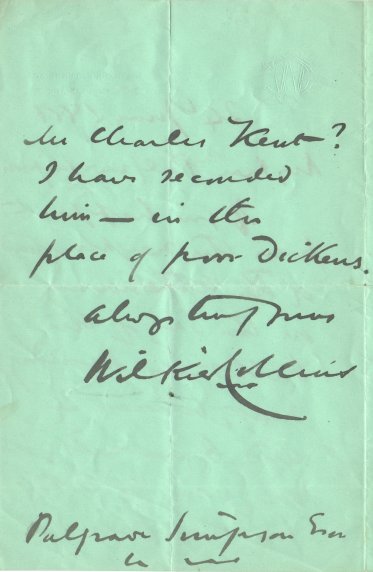 Mr Charles Kent?
I have seconded
him — in the
place of poor Dickens.
always truly yours
Wilkie Collins
Palgrave Simpson Esq